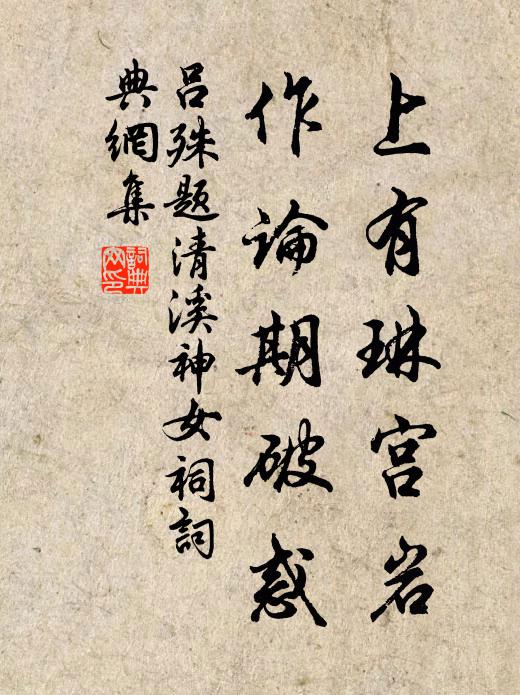 上有琳宫岩
作論期破惑
吕殊题清溪神女祠詞
典網集
詞典网印